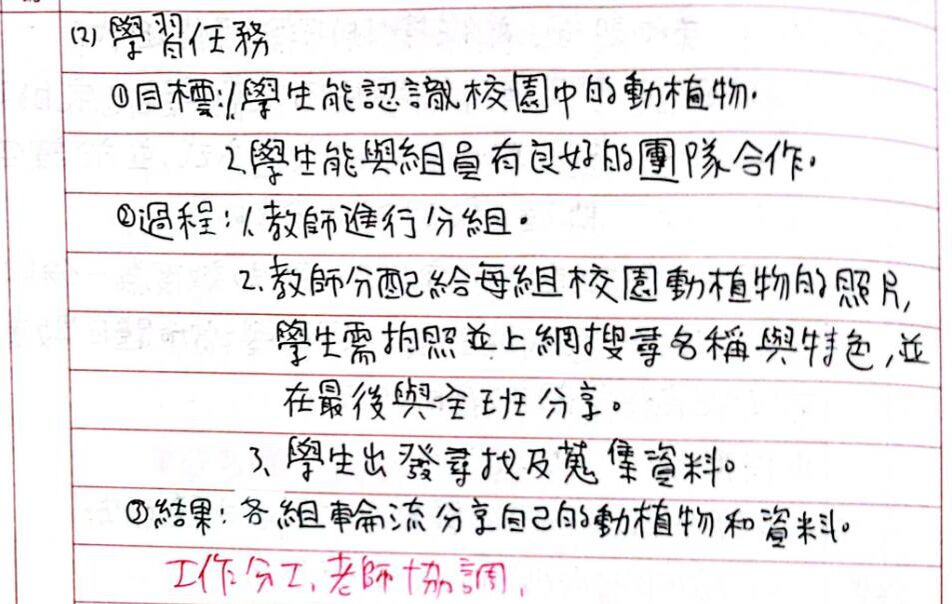 (2) 學習任務
①目標:1.學生能認識校園中的動植物.
2.學生能與組員有良好的團隊合作.
②過程:1.教師進行分組.
2.教師分配給每組校園動植物的照片,
學生需拍照並上網搜尋名稱與特色,並
在最後與全班分享。
3.學生出發尋找及蒐集資料。
③結果:各組輪流分享自己的動植物和資料。
工作分工,老師協調.